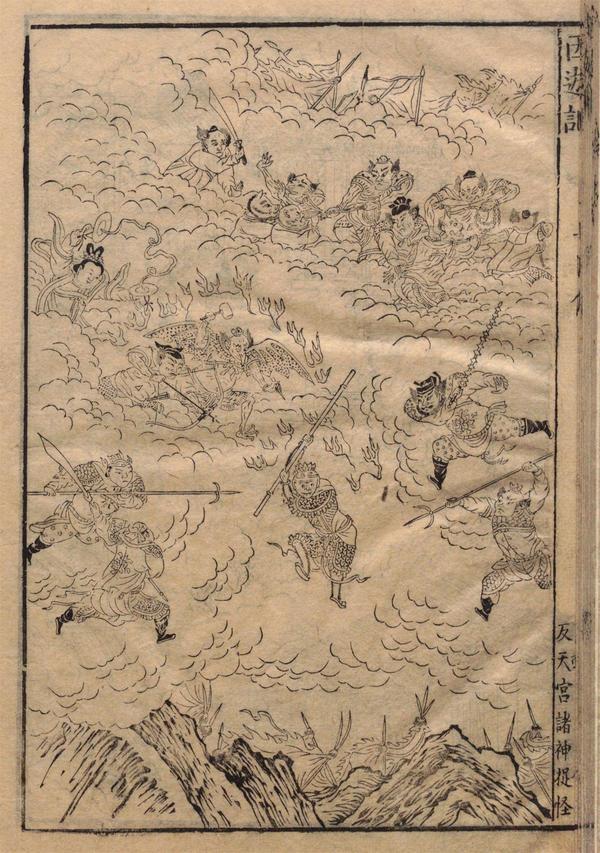 西遊記
反天宮諸神捉怪